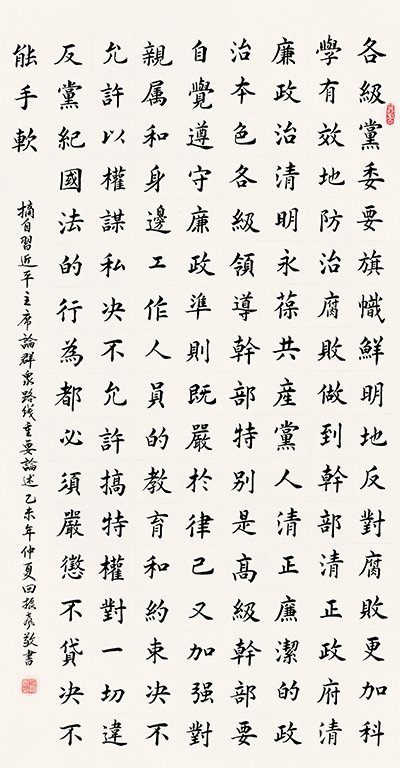 各級黨委要旗幟鮮明地反對腐敗更加科
學有效地防治腐敗做到幹部清正政府清
廉政治清明永葆共産黨人清正廉潔的政
治本色各級領導幹部特别是髙級幹部要
自覺遵守廉政準則既嚴於律己又加强對
親属和身邊工作人員的教育和約束决不
允許以權謀私决不允許搞特權對一切違
反黨紀國法的行為都必須嚴懲不貸决不
能手軟
摘自習近平主席論群衆路线重要論述乙未年仲夏敬書